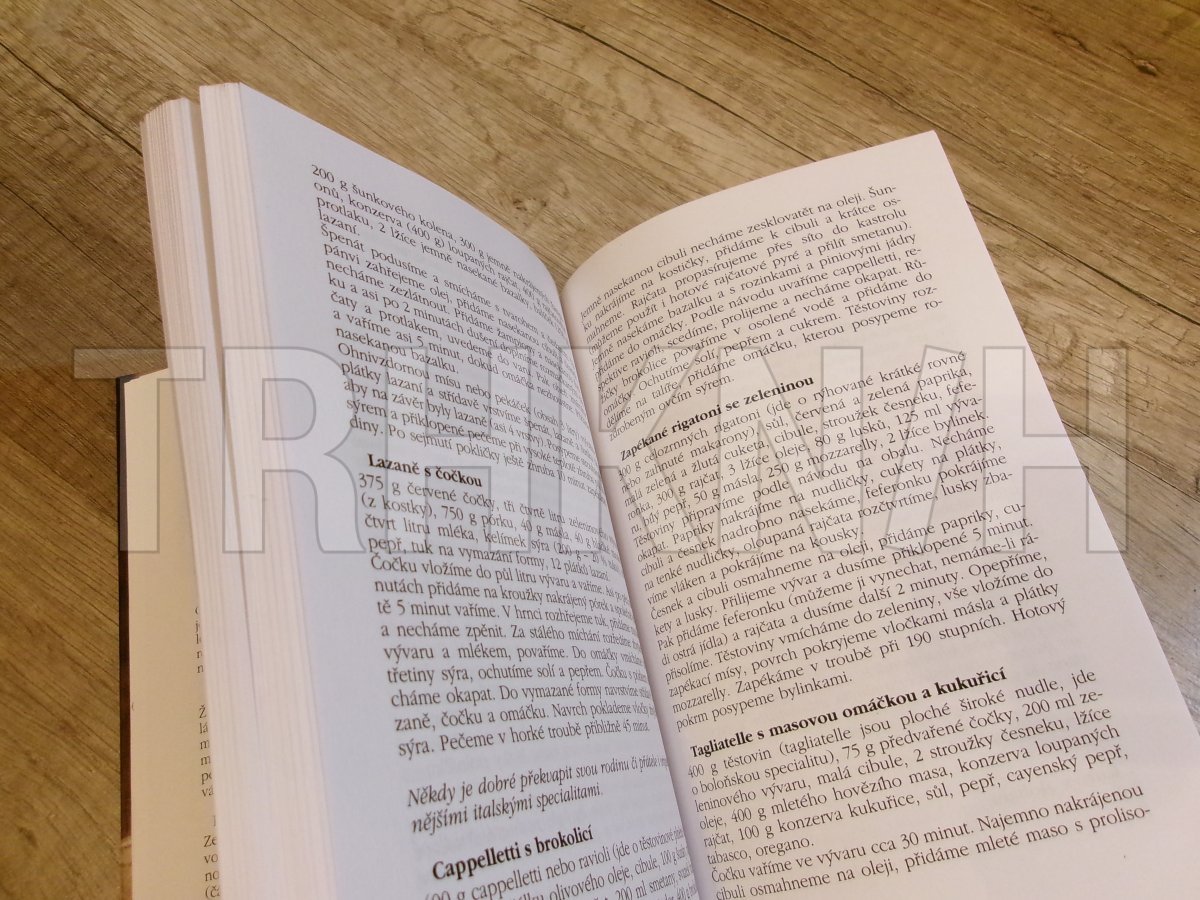 200 g šunkového kolena, 300 g jemně nakrájených
onů, konzerva (400 g) loupaných rajčat,
protlaku, 2 lžíce jemně nasekané bazalky,
lazaní.
Špenát podusíme a smícháme s tvarohem. V
pánvi zahřejeme olej, přidáme nasekanou cibuli
necháme zezlátnout. Přidáme žampiony a
ku a asi po 2 minutách dušení doplníme
čaty a protlakem, uvedeme do varu. Pak
a vaříme asi 5 minut, dokud omáčka nezhoustne.
nasekanou bazalku.
Ohnivzdornou mísu nebo pekáček
plátky lazaní a střídavě vrstvíme špenát, lazaně a
aby na závěr byly lazaně (asi 4 vrstvy). Posypeme
sýrem a přiklopené pečeme při vysoké teplotě
diny. Po sejmutí pokličky ještě zhruba 10 minut
Lazaně s čočkou
375 g červené čočky, tři čtvrtě litru zeleninového
(z kostky), 750 g pórku, 40 g másla, 40 g
čtvrt litru mléka, kelímek sýra (200 g
pepř, tuk na vymazání formy, 12 plátků lazaní.
Čočku vložíme do půl litru vývaru a vaříme. Asi po
nutách přidáme na kroužky nakrájený pórek a
tě 5 minut vaříme. V hrnci rozhřejeme tuk, přidáme
a necháme zpěnit. Za stálého míchání rozředíme
vývaru a mlékem, povaříme. Do omáčky vmícháme
třetiny sýra, ochutíme solí a pepřem. Čočku s pórkem
cháme okapat. Do vymazané formy navrstvíme střídavě
zaně, čočku a omáčku. Navrch poklademe vločky
sýra. Pečeme v horké troubě přibližně 45 minut.
Někdy je dobré překvapit svou rodinu či přátele
nějšími italskými specialitami.
Cappelletti s brokolicí
400 g cappelletti nebo ravioli (jde o těstovinové
olivového oleje, cibule, 100 g
200 ml smetany,
jemně nasekanou cibuli necháme zesklovatět na oleji. Šun-
ku nakrájíme na kostičky, přidáme k cibuli a krátce os-
mahneme. Rajčata propasírujeme přes síto do kastrolu
(můžeme použít i hotové rajčatové pyré a přilít smetanu).
Jemně nasekáme bazalku a s rozinkami a piniovými jádry
přidáme do omáčky. Podle návodu uvaříme cappelletti, re-
spektive ravioli, scedíme, prolijeme a necháme okapat. Rů-
žičky brokolice povaříme v osolené vodě a přidáme do
omáčky. Ochutíme solí, pepřem a cukrem. Těstoviny roz-
dělíme na talíře, přidáme omáčku, kterou posypeme ro-
zdrobeným ovčím sýrem.
Zapékané rigatoni se zeleninou
400 g celozrnných rigatoni (jde o rýhované krátké rovné
nebo zahnuté makarony), sůl, červená a zelená paprika,
malá zelená a žlutá cuketa, cibule, stroužek česneku, fefe-
ronka, 300 g rajčat, 3 lžíce oleje, 80 g lusků, 125 ml výva-
ru, bílý pepř, 50 g másla, 250 g mozzarelly, 2 lžíce bylinek.
Těstoviny připravíme podle návodu na obalu. Necháme
okapat. Papriky nakrájíme na nudličky, cukety na plátky,
cibuli a česnek nadrobno nasekáme, feferonku pokrájíme
na tenké nudličky, oloupaná rajčata rozčtvrtíme, lusky zba-
víme vláken a pokrájíme na kousky.
Česnek a cibuli osmahneme na oleji, přidáme papriky, cu-
kety a lusky. Přilijeme vývar a dusíme přiklopené 5 minut.
Pak přidáme feferonku (můžeme ji vynechat, nemáme-li rá-
di ostrá jídla) a rajčata a dusíme další 2 minuty. Opepříme,
přisolíme. Těstoviny vmícháme do zeleniny, vše vložíme do
zapékací mísy, povrch pokryjeme vločkami másla a plátky
mozzarelly. Zapékáme v troubě při 190 stupních. Hotový
pokrm posypeme bylinkami.
Tagliatelle s masovou omáčkou a kukuřicí
400 g těstovin (tagliatelle jsou ploché široké nudle, jde
o boloňskou specialitu), 75 g předvařené čočky, 200 ml ze-
leninového vývaru, malá cibule, 2 stroužky česneku, lžíce
oleje, 400 g mletého hovězího masa, konzerva loupaných
rajčat, 100 g konzerva kukuřice, sůl, pepř, cayenský pepř,
tabasco, oregano.
Čočku vaříme ve vývaru cca 30 minut. Najemno nakrájenou
cibuli osmahneme na oleji, přidáme mleté maso s proliso-